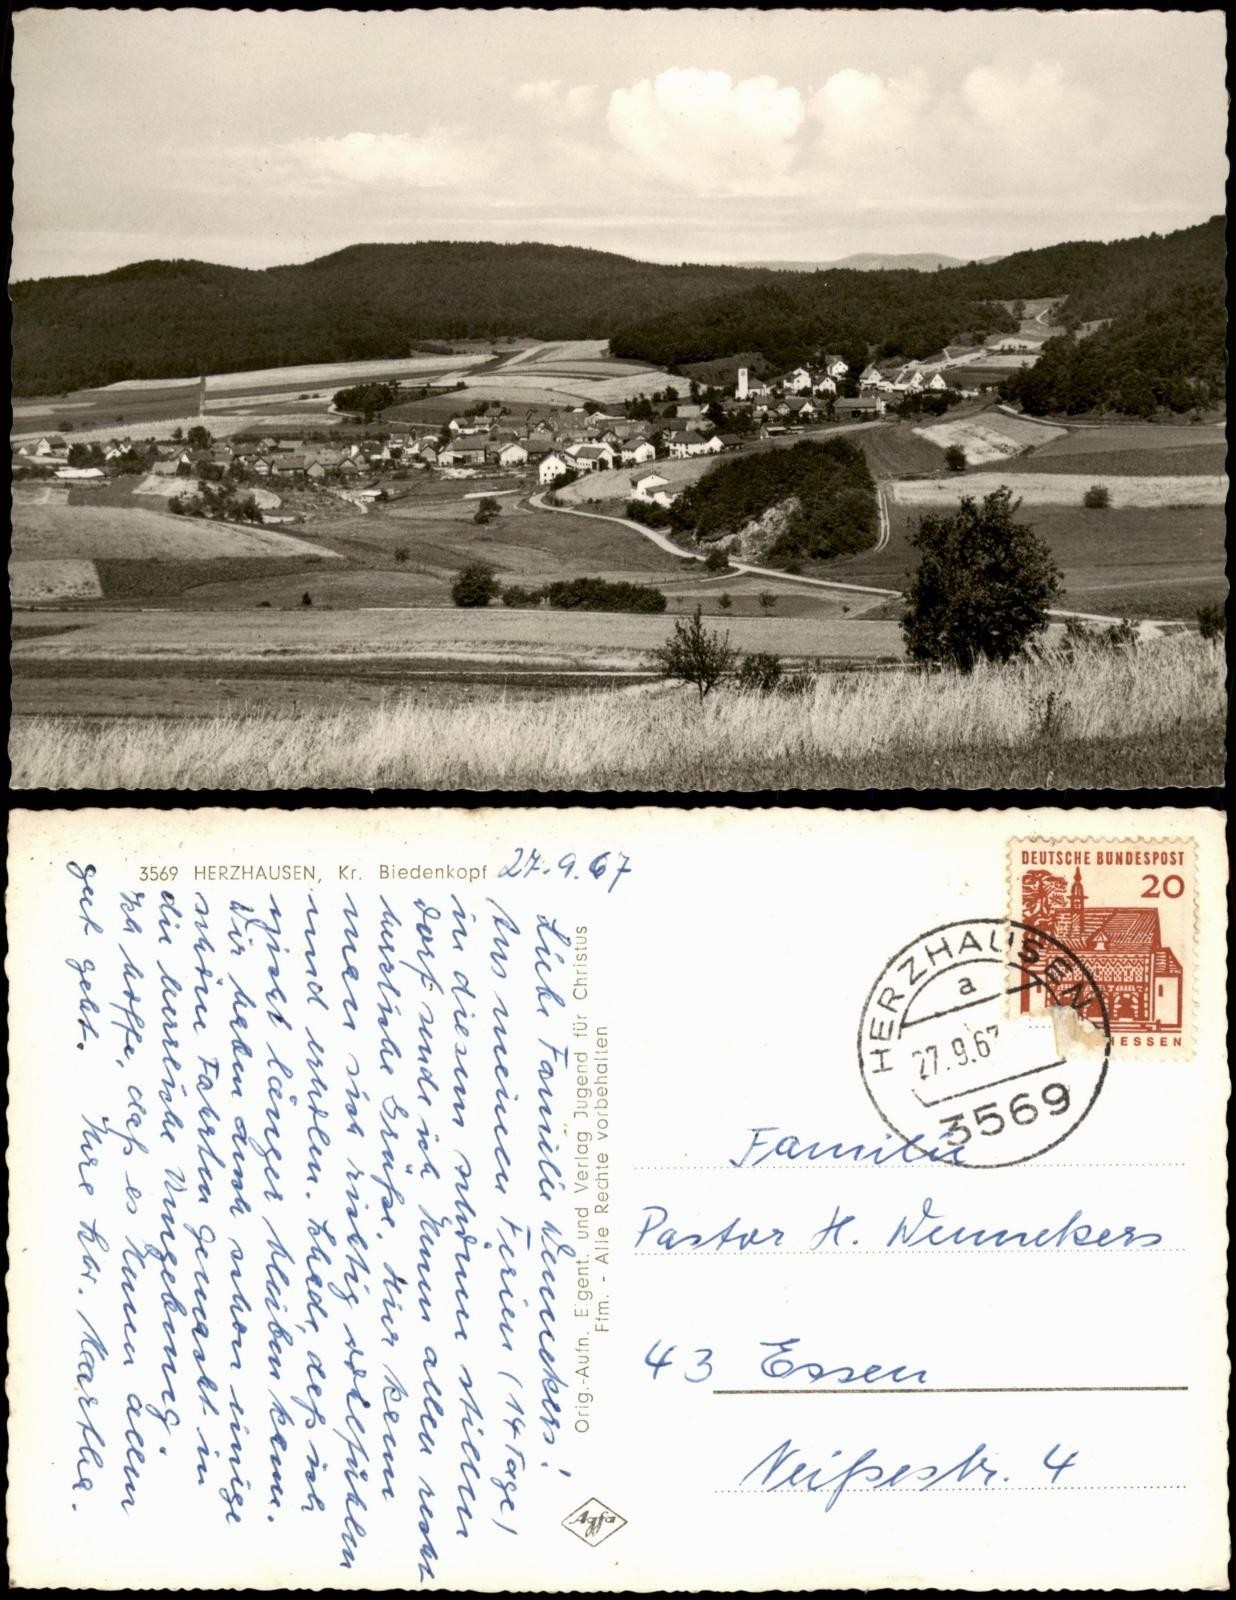 3569 HERZHAUSEN, Kr. Biedenkopf
27.9.67
Liebe Familie Wennekers!
Aus meinen Ferien (14 Tage)
in diesem schönen stillen
Dorf sende ich Ihnen allen recht
herzliche Grüße. Hier kann
man sich richtig wohlfühlen
und erholen. Schade, daß ich
nicht länger bleiben kann.
Wir haben auch schon einige
schöne Fahrten gemacht in
die herrliche Umgebung.
Ich hoffe, daß es Ihnen allen
gut geht. Ihre Martha.
Orig.-Aufn. Eigent. und Verlag Jugend für Christus
Ffm. - Alle Rechte vorbehalten
Agfa
DEUTSCHE BUNDESPOST
20
HESSEN
HERZHAUSEN
a
27.9.67
3569
Familie
Pastor H. Wennekers
43 Essen
Neißestr. 4